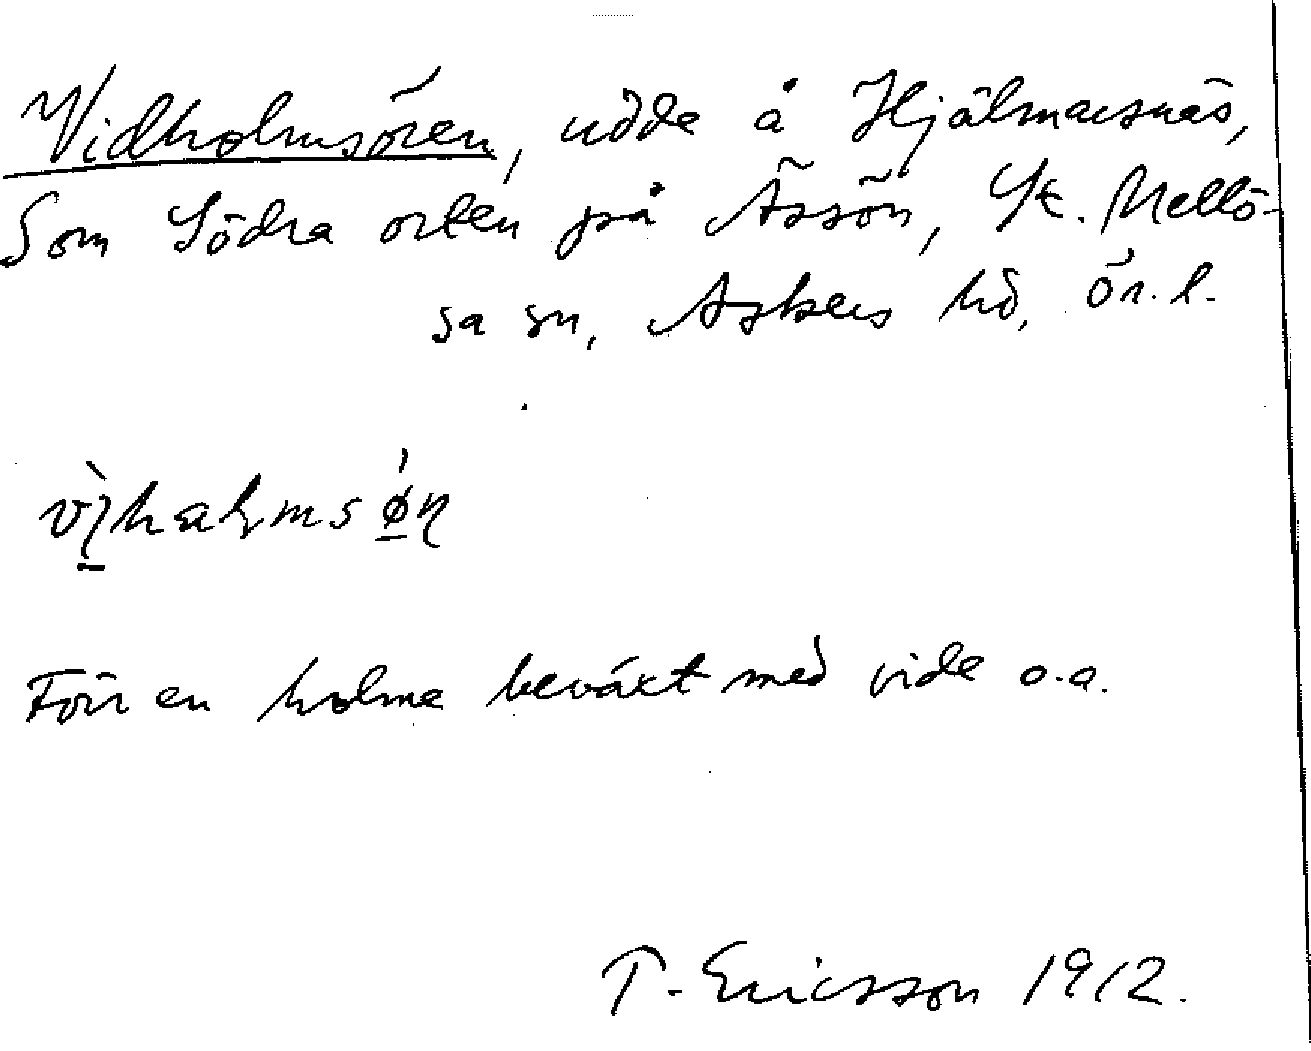 Vidholmsören, udde å Hjälmarsnäs,
Som Södra orten på Åsön, St. Mellö-
sa sn, Askers hd, Ör. l.
Förr en holme beväxt med vide o.a.
T. Ericsson 1912.